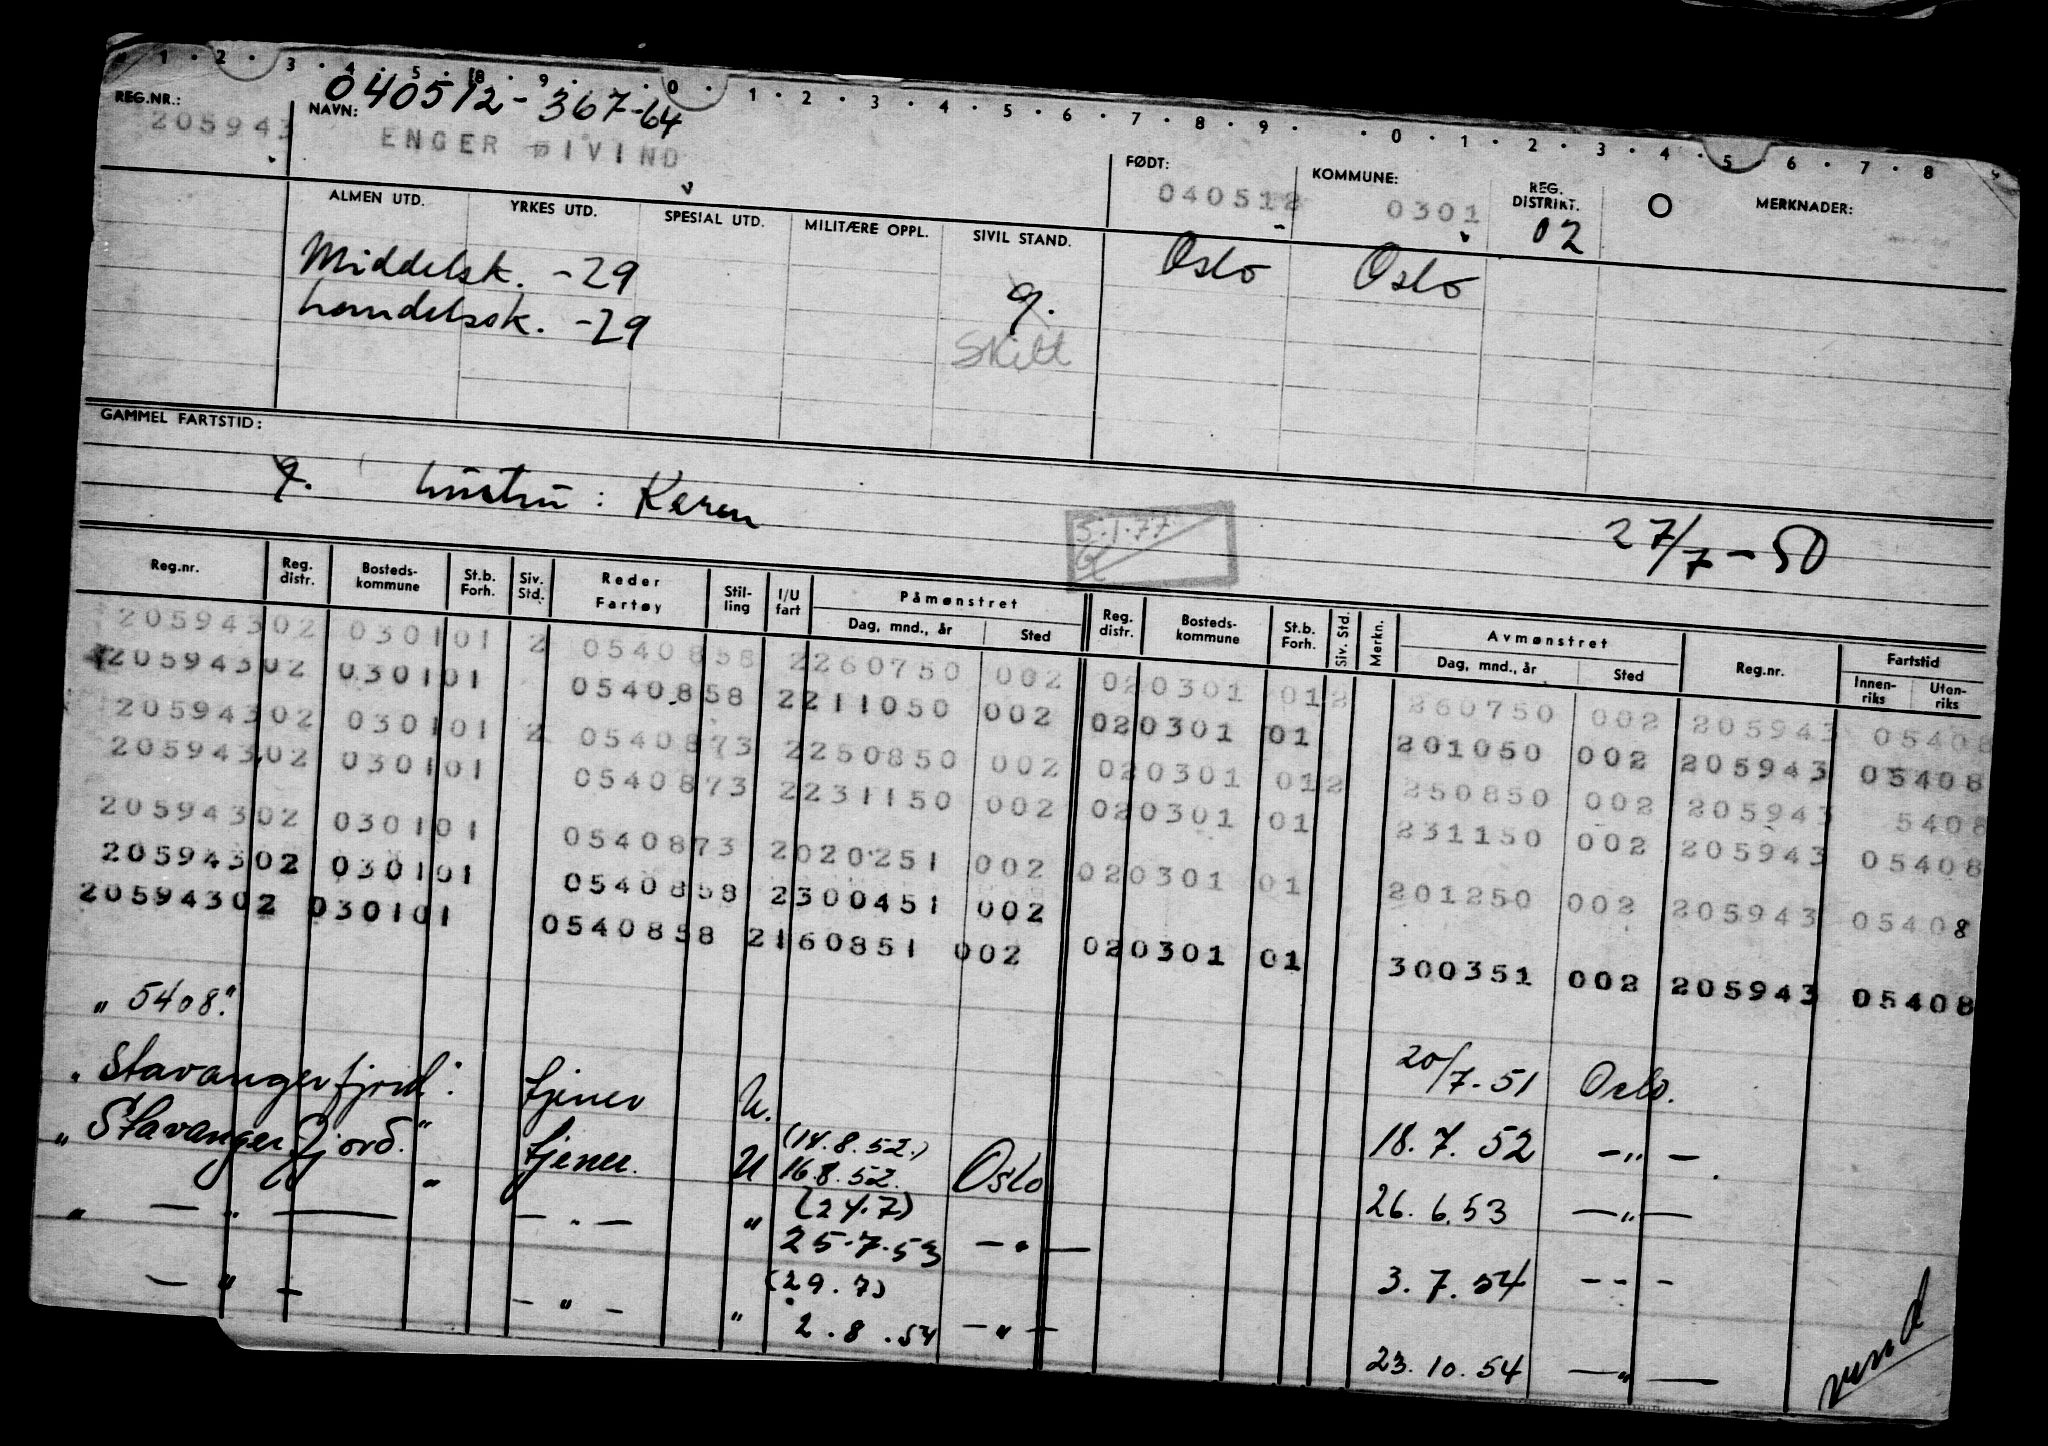 1 · 2 · 3 · 4 · 5 · 8 · 9 · 0 · 1 · 2 · 3 · 4 · 5 · 6 · 7 · 8 · 9 · 0 · 1 · 2 · 3 · 4 · 5 · 6 · 7 · 8
040512-367-64
REG.NR.: 205943 NAVN: ENGER ØIVIND FØDT: 040512 KOMMUNE: 0301 REG. DISTRIKT. 02 O MERKNADER:
ALMEN UTD. YRKES UTD. SPESIAL UTD. MILITÆRE OPPL. SIVIL STAND.
Middelsk. -29 g. Oslo Oslo
handelssk. -29 Skilt
GAMMEL FARTSTID:
g. hustru: Karen 5.1.77 27/7-50
Reg.nr. Reg. distr. Bosteds-kommune St.b. Forh. Siv. Std. Reder Fartøy Stil-ling I/U fart Påmønstret Dag, mnd., år Sted Reg. distr. Bosteds-kommune St.b. Forh. Siv. Std. Merkn. Avmønstret Dag, mnd., år Sted Reg.nr. Fartstid Innen-riks Uten-riks
20594302 030101 2 0540858 2260750 002 020301 012 260750 002 205943 05408
20594302 030101 0540858 2211050 002 020301 01 201050 002 205943 05408
20594302 030101 2 0540873 2250850 002 020301 012 250850 002 205943 5408
20594302 030101 0540873 2231150 002 020301 01 231150 002 205943 05408
20594302 030101 0540873 2020251 002 020301 01 201250 002 205943 05408
20594302 030101 0540858 2300451 002
20594302 030101 0540858 2160851 002 020301 01 300351 002 205943 05408
"5408"
20/7-51 Oslo.
"Stavangerfjord". tjener U. 18.7.52 -"-
"Stavangerfjord." tjener. U (14.8.52.) 16.8.52. Oslo 26.6.53 -"-
" -"- " -"- " (24.7) 25.7.53 -"- 3.7.54 ---
-"- -"- " (29.7) 2.8.54 -"- 23.10.54 -"-
vend